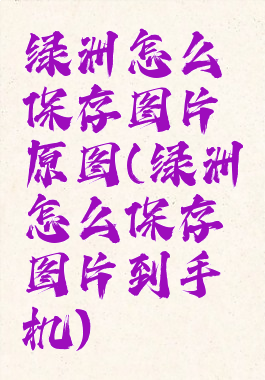 绿洲怎么
保存图片
原图(绿洲
怎么保存
图片到手
机)